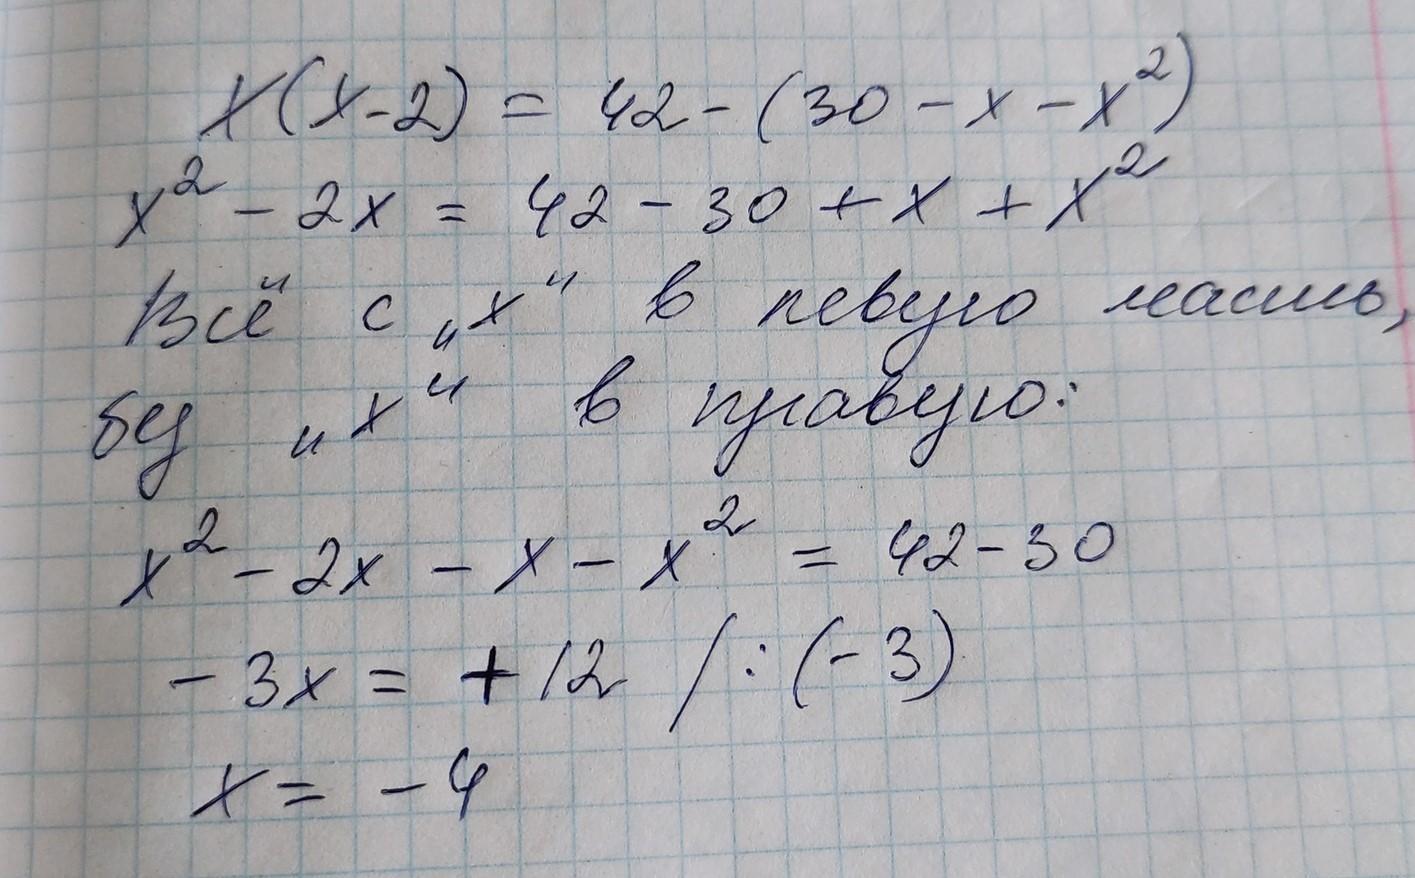 x(x-2) = 42-(30-x-x²)
x²-2x = 42-30+x+x²
Всё с „x“ в левую часть,
без „x“ в правую:
x²-2x-x-x² = 42-30
-3x = +12 /:(-3)
x = -4